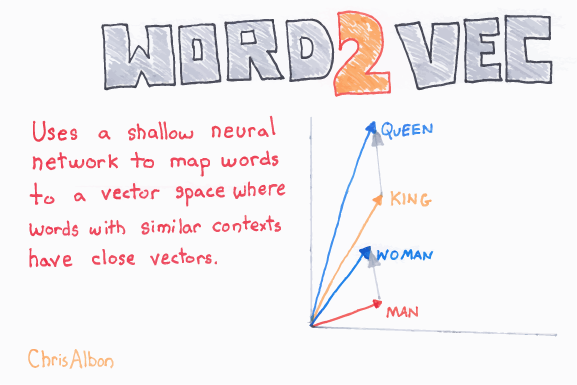 WORD2VEC
Uses a shallow neural
network to map words
to a vector space where
words with similar contexts
have close vectors.
QUEEN
KING
WOMAN
MAN
ChrisAlbon